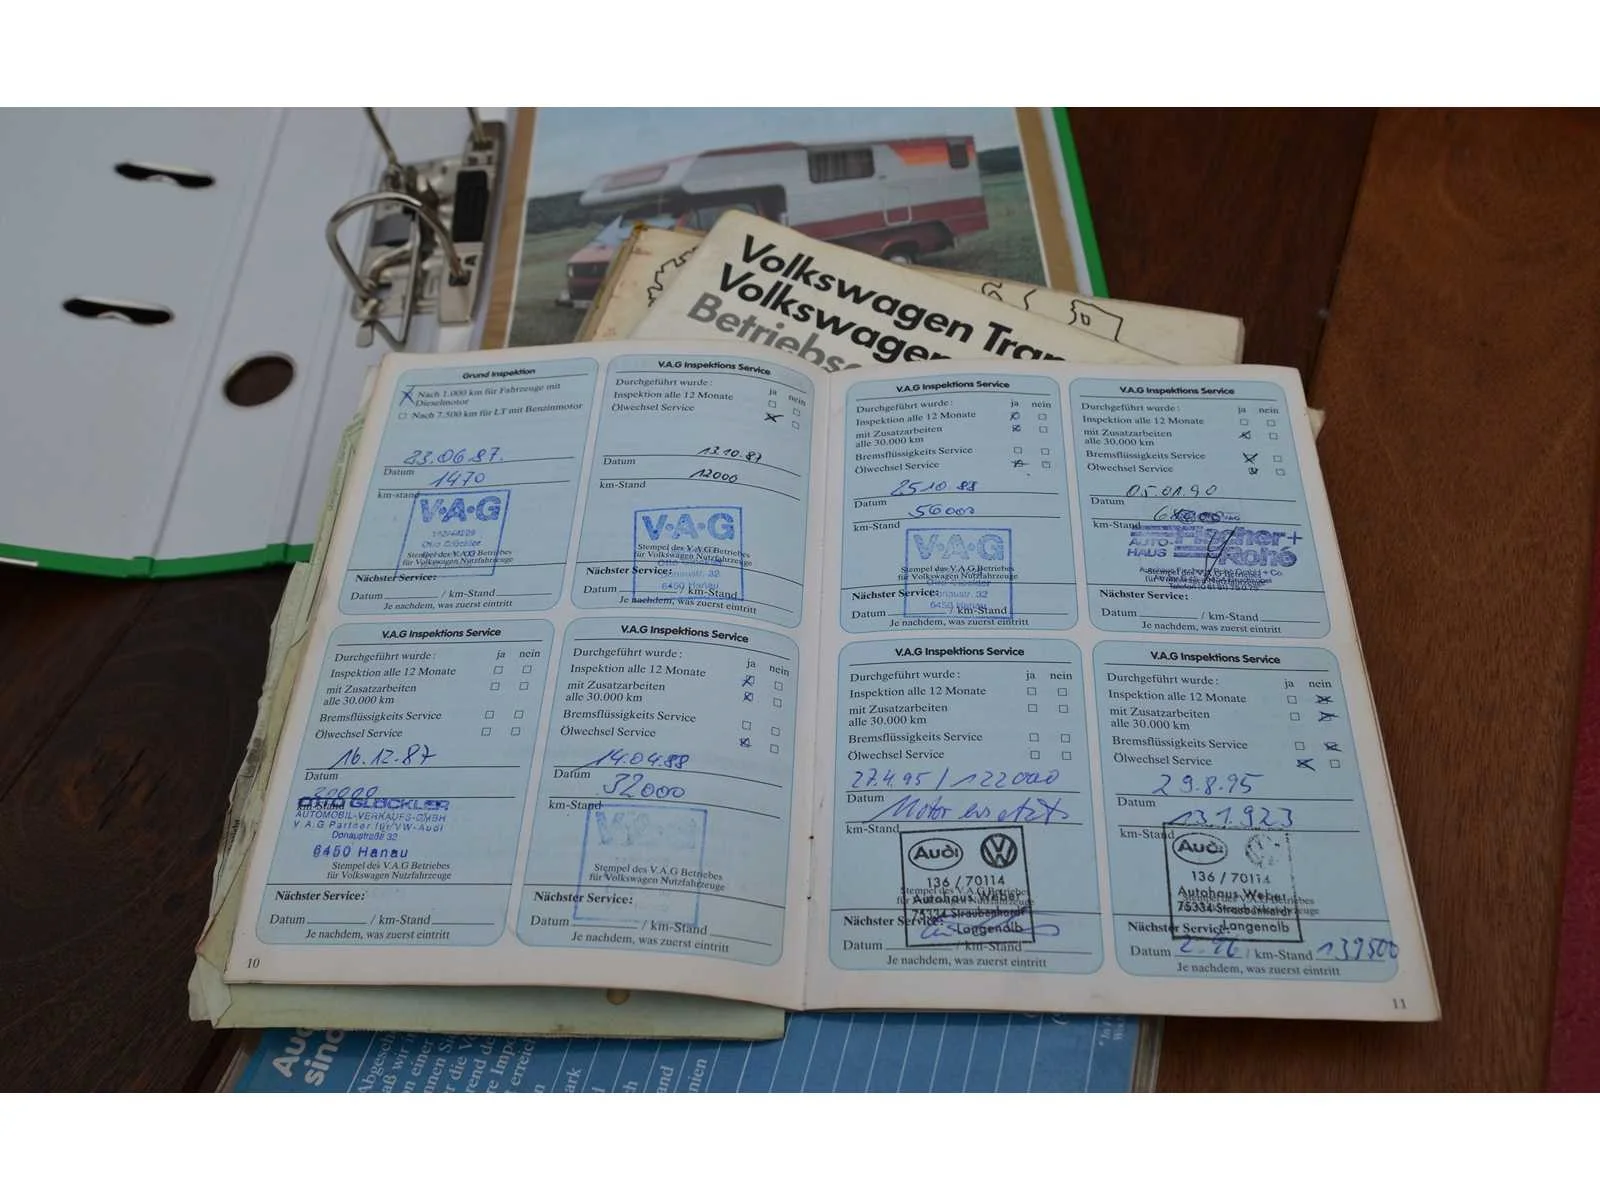 Volkswagen Tran
Volkswagen
Betriebs
Grund Inspektion
Nach 1.000 km für Fahrzeuge mit
Dieselmotor
Nach 7.500 km für LT mit Benzinmotor
23.06.87.
Datum
1470
km-stand
V·A·G
Stempel des V.A.G Betriebes
für Volkswagen Nutzfahrzeuge
Nächster Service:
Datum / km-Stand
Je nachdem, was zuerst eintritt
V.A.G Inspektions Service
Durchgeführt wurde: ja nein
Inspektion alle 12 Monate
Ölwechsel Service
13.10.87
Datum
12000
km-Stand
V·A·G
Stempel des V.A.G Betriebes
für Volkswagen Nutzfahrzeuge
Donaustr. 32
Nächster Service:
6450 Hanau
Datum / km-Stand
Je nachdem, was zuerst eintritt
V.A.G Inspektions Service
Durchgeführt wurde: ja nein
Inspektion alle 12 Monate
mit Zusatzarbeiten
alle 30.000 km
Bremsflüssigkeits Service
Ölwechsel Service
16.12.87
Datum
20000
km-Stand
OTTO GLÖCKLER
AUTOMOBIL-VERKAUFS-GMBH
V.A.G Partner für VW-Audi
Donaustraße 32
6450 Hanau
Stempel des V.A.G Betriebes
für Volkswagen Nutzfahrzeuge
Nächster Service:
Datum / km-Stand
Je nachdem, was zuerst eintritt
10
V.A.G Inspektions Service
Durchgeführt wurde: ja nein
Inspektion alle 12 Monate
mit Zusatzarbeiten
alle 30.000 km
Bremsflüssigkeits Service
Ölwechsel Service
14.04.88
Datum
32000
km-Stand
V·A·G
Stempel des V.A.G Betriebes
für Volkswagen Nutzfahrzeuge
Nächster Service:
Datum / km-Stand
Je nachdem, was zuerst eintritt
V.A.G Inspektions Service
Durchgeführt wurde: ja nein
Inspektion alle 12 Monate
mit Zusatzarbeiten
alle 30.000 km
Bremsflüssigkeits Service
Ölwechsel Service
25.10.88
Datum
56000
km-Stand
V·A·G
Stempel des V.A.G Betriebes
für Volkswagen Nutzfahrzeuge
Nächster Service:
Donaustr. 32
6450 Hanau
Datum / km-Stand
Je nachdem, was zuerst eintritt
V.A.G Inspektions Service
Durchgeführt wurde: ja nein
Inspektion alle 12 Monate
mit Zusatzarbeiten
alle 30.000 km
Bremsflüssigkeits Service
Ölwechsel Service
05.01.90
Datum
km-Stand
AUTO-
HAUS
Fischer+
Rohé
Stempel des V.A.G Betriebes
für Volkswagen Nutzfahrzeuge
Nächster Service:
Datum / km-Stand
Je nachdem, was zuerst eintritt
V.A.G Inspektions Service
Durchgeführt wurde: ja nein
Inspektion alle 12 Monate
mit Zusatzarbeiten
alle 30.000 km
Bremsflüssigkeits Service
Ölwechsel Service
27.4.95 / 122000
Datum
Motor ersetzt
km-Stand
Audi
136 / 70114
Stempel des V.A.G Betriebes
Autohaus Weber
75334 Straubenhardt
Nächster Service:
Langenalb
Datum / km-Stand
Je nachdem, was zuerst eintritt
V.A.G Inspektions Service
Durchgeführt wurde: ja nein
Inspektion alle 12 Monate
mit Zusatzarbeiten
alle 30.000 km
Bremsflüssigkeits Service
Ölwechsel Service
29.8.95
Datum
131.923
km-Stand
Audi
136 / 70114
Autohaus Weber
75334 Straubenhardt
Nächster Service:
Langenalb
Datum 2.96 / km-Stand 139500
Je nachdem, was zuerst eintritt
11